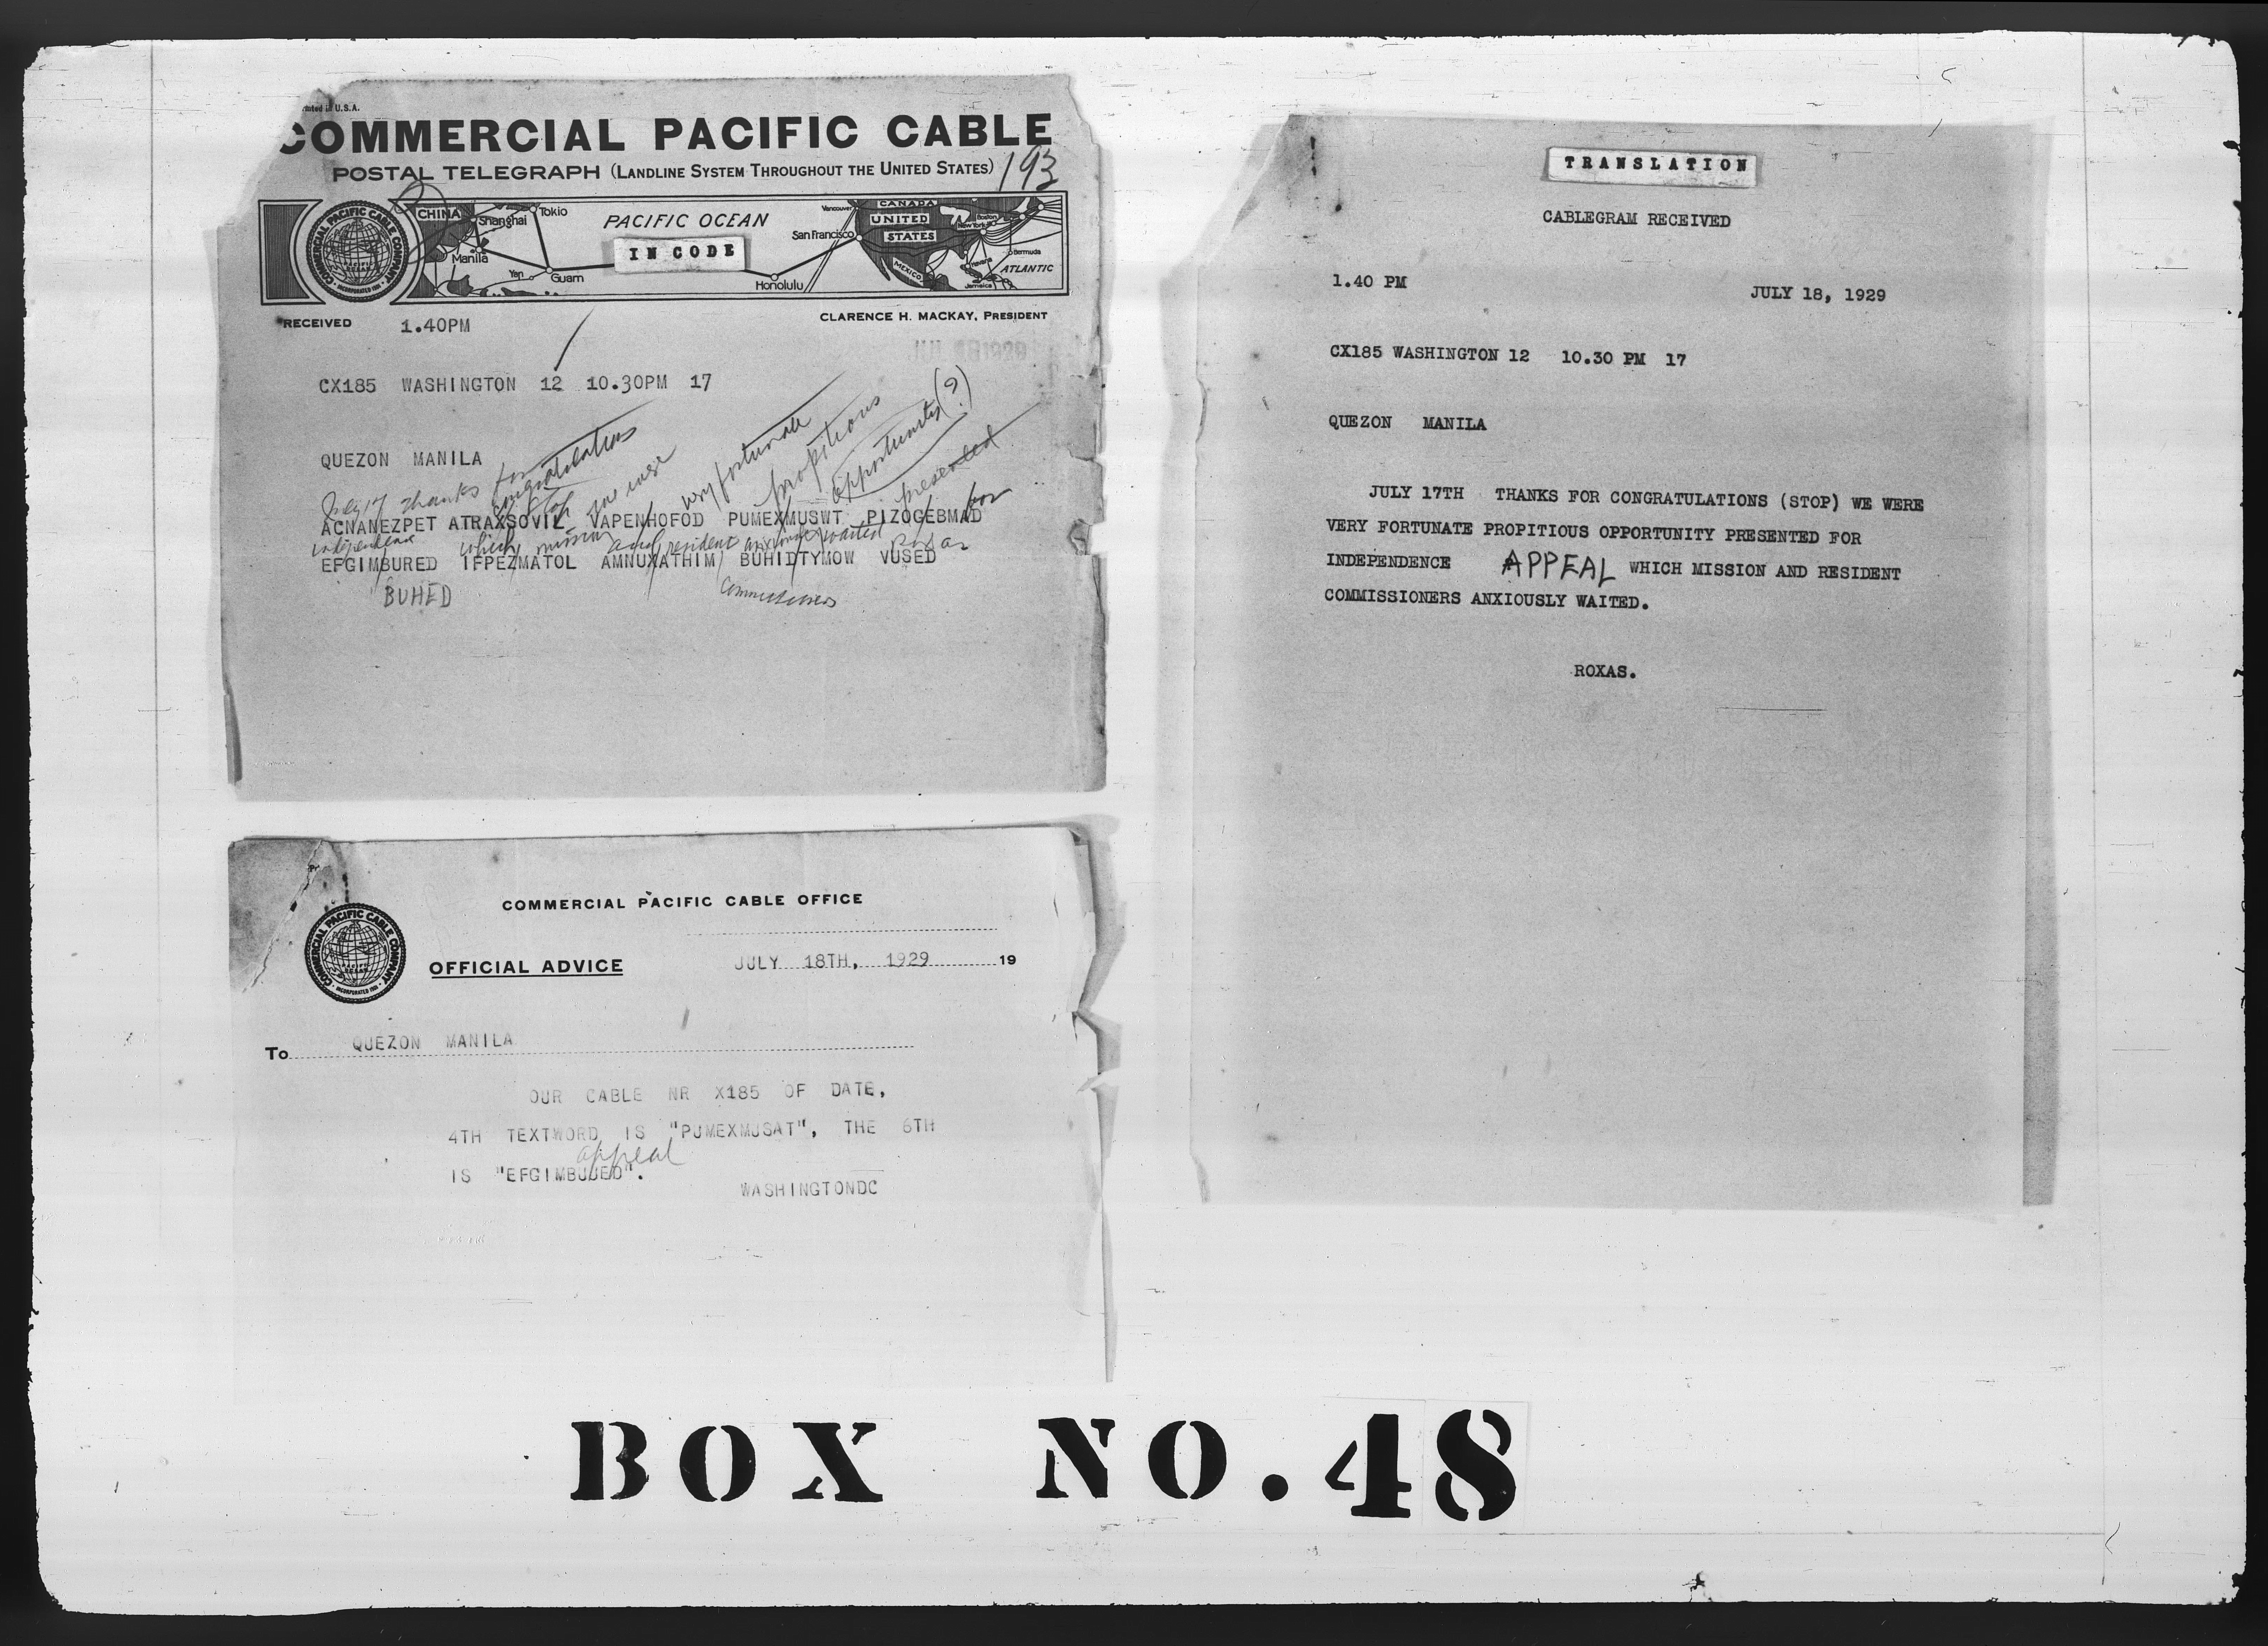 Printed in U.S.A.
COMMERCIAL PACIFIC CABLE
POSTAL TELEGRAPH (LANDLINE SYSTEM THROUGHOUT THE UNITED STATES)
193
COMMERCIAL PACIFIC CABLE COMPANY
INCORPORATED
CHINA
Shanghai
Tokio
Manila
Yap
Guam
PACIFIC OCEAN
IN CODE
Honolulu
San Francisco
Vancouver
CANADA
UNITED
STATES
MEXICO
Boston
New York
Bermuda
Havana
Jamaica
ATLANTIC
RECEIVED 1.40PM
CLARENCE H. MACKAY, PRESIDENT
JUL 18 1929
CX185 WASHINGTON 12 10.30PM 17
QUEZON MANILA
July 17 thanks for congratulations stop we were very fortunate propitious opportunity (?) presented for
ACNANEZPET ATRAXSOVIL VAPENHOFOD PUMEXMUSWT PIZOGEBMAD
independence which mission and resident anxiously waited Roxas
EFGIMBURED IFPEZMATOL AMNUXATHIM BUHIDTYMOW VUSED
BUHED
commissioners
COMMERCIAL PACIFIC CABLE OFFICE
COMMERCIAL PACIFIC CABLE COMPANY
INCORPORATED
OFFICIAL ADVICE JULY 18TH, 1929 19
To QUEZON MANILA
OUR CABLE NR X185 OF DATE,
4TH TEXTWORD IS "PUMEXMUSAT", THE 6TH
appeal
IS "EFGIMBUJED".
WASHINGTONDC
TRANSLATION
CABLEGRAM RECEIVED
1.40 PM
JULY 18, 1929
CX185 WASHINGTON 12 10.30 PM 17
QUEZON MANILA
JULY 17TH THANKS FOR CONGRATULATIONS (STOP) WE WERE
VERY FORTUNATE PROPITIOUS OPPORTUNITY PRESENTED FOR
INDEPENDENCE APPEAL WHICH MISSION AND RESIDENT
COMMISSIONERS ANXIOUSLY WAITED.
ROXAS.
BOX NO.48